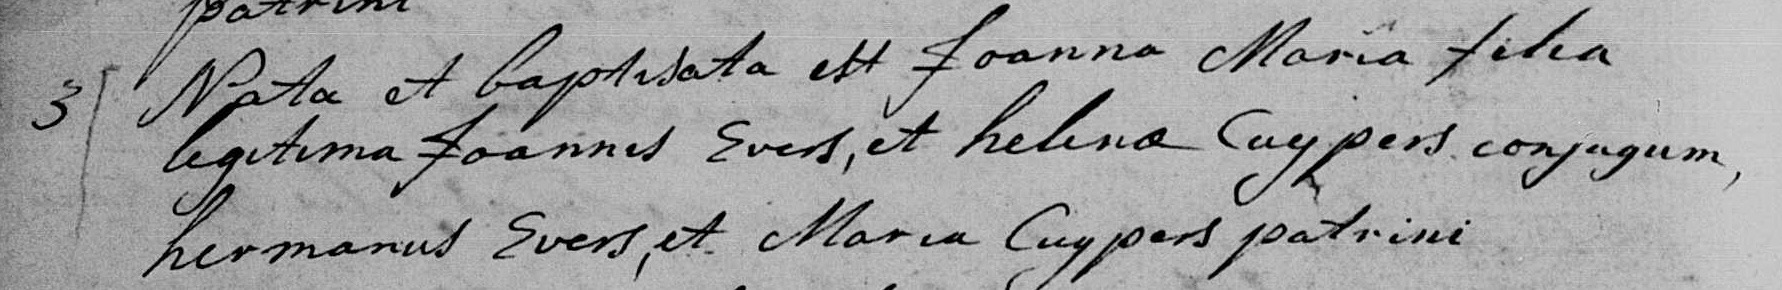 patrini
3 Nata et baptisata est Joanna Maria filia
legitima Joannis Evers, et helena Cuypers conjugum,
hermanus Evers, et Maria Cuypers patrini